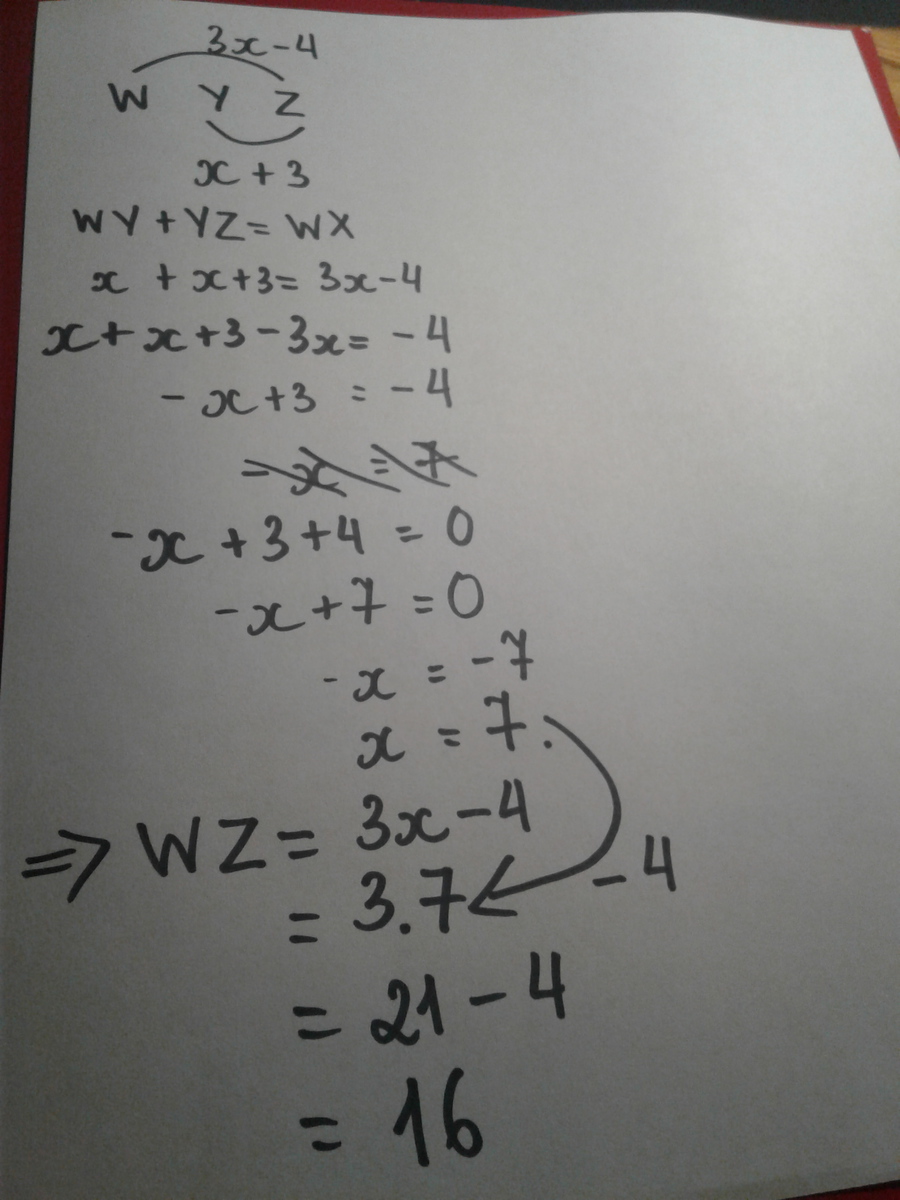 3x-4
W Y Z
x + 3
WY + YZ = WX
x + x+3 = 3x-4
x + x + 3 - 3x = -4
- x + 3 = -4
- x = 7
-x + 3 + 4 = 0
-x + 7 = 0
- x = -7
x = 7.
⇒ WZ = 3x - 4
= 3.7 - 4
= 21 - 4
= 16